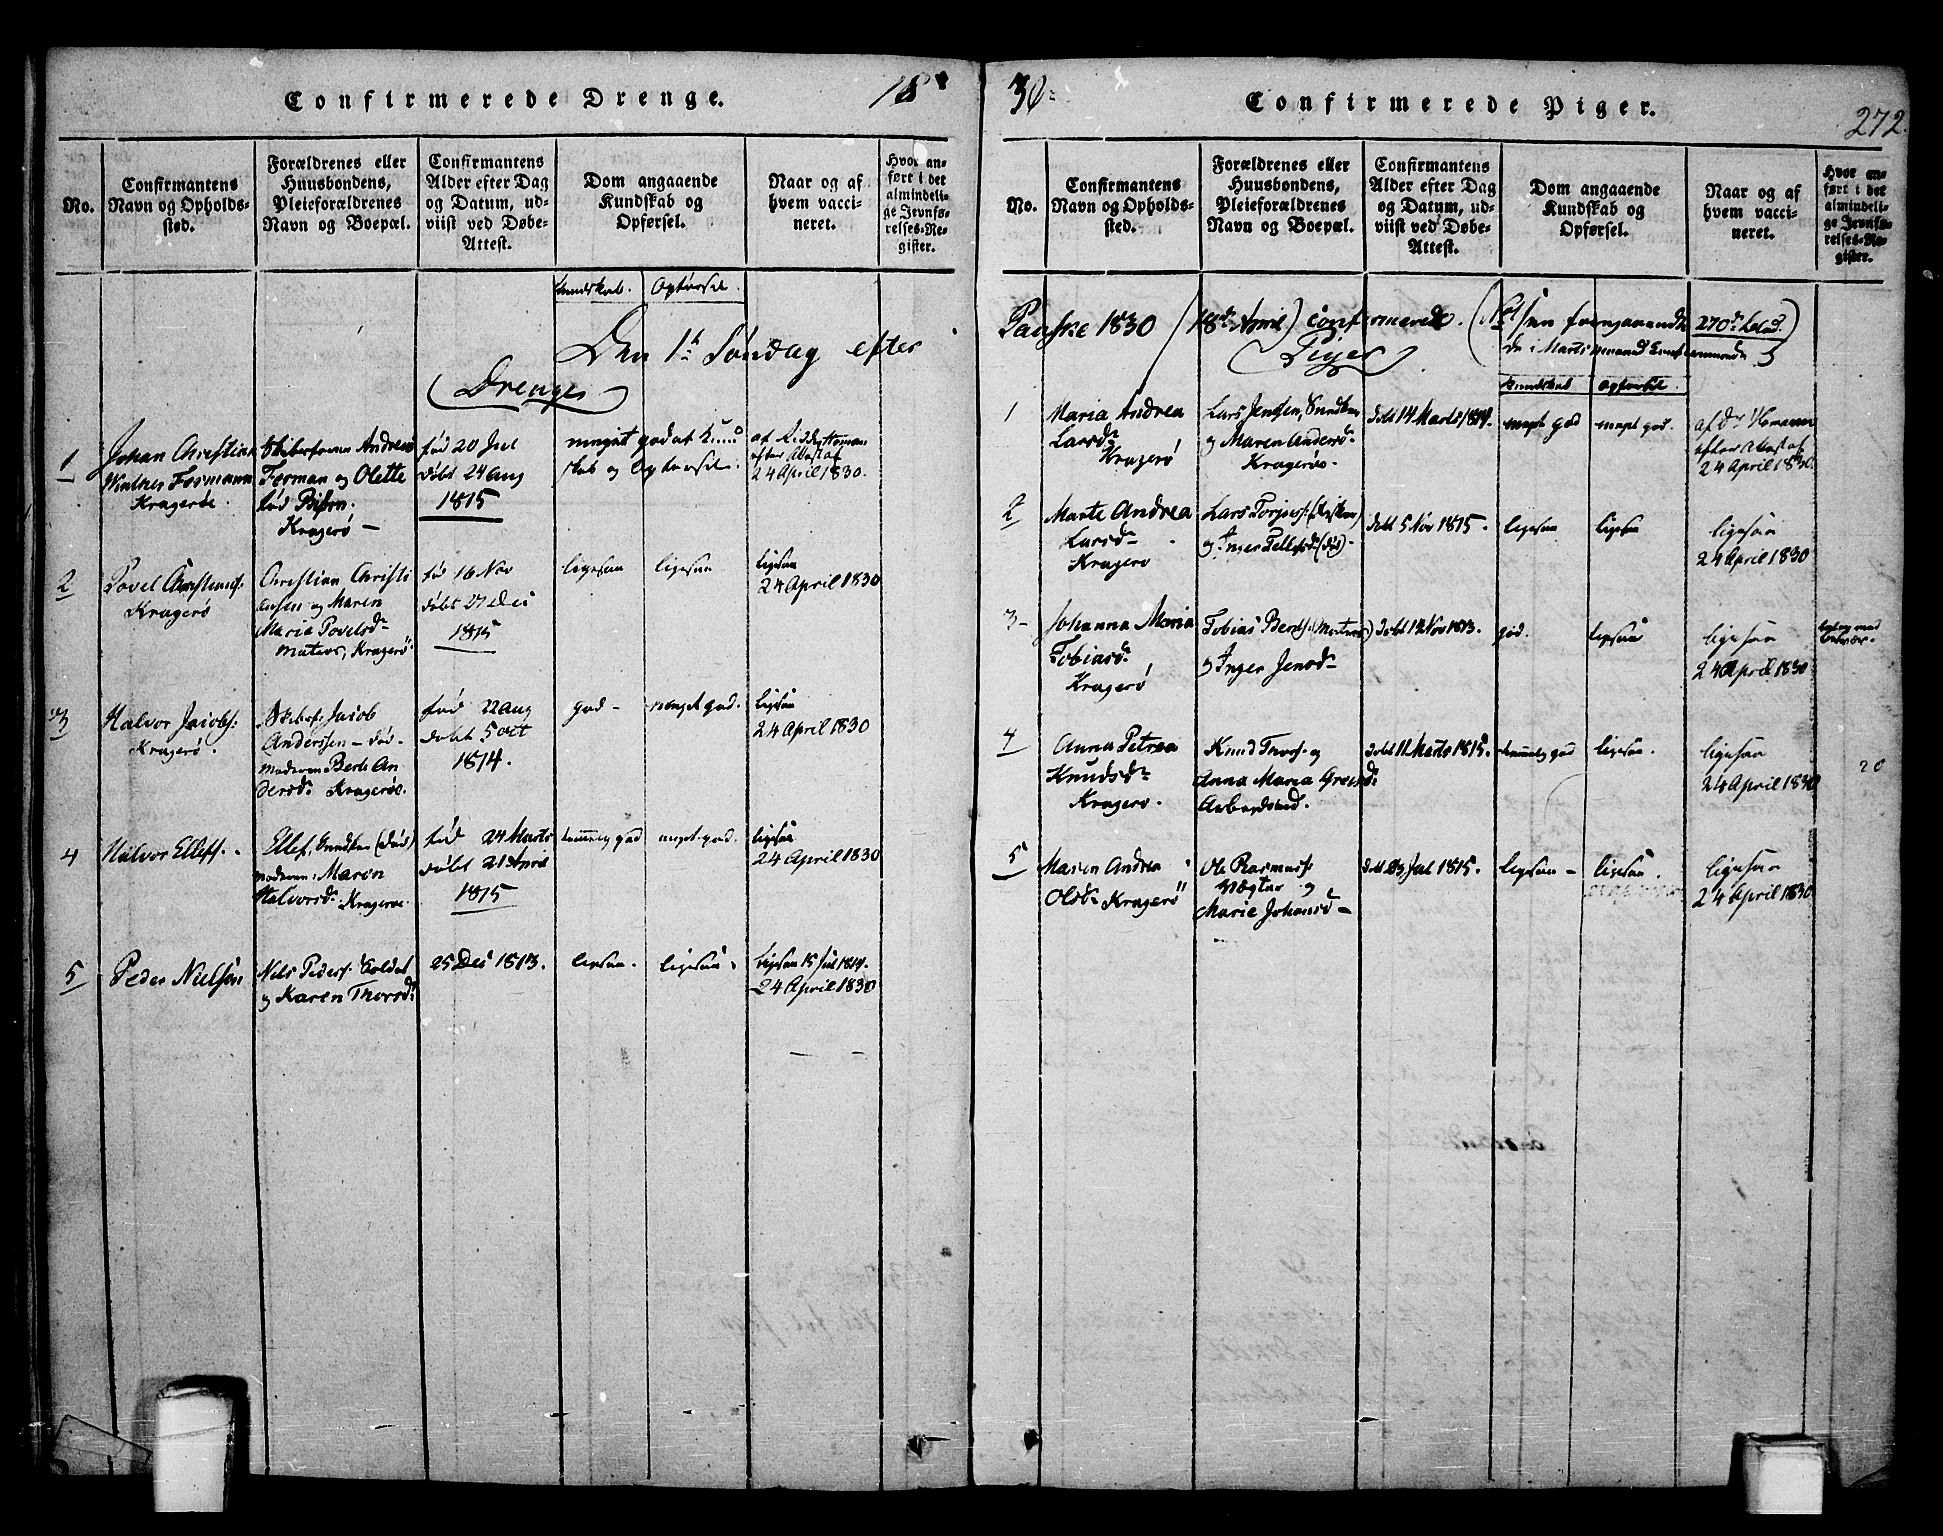 Confirmerede Drenge.
18
No.
Confirmantens
Navn og Opholds-
sted.
Forældrenes eller
Huusbondens,
Pleieforældrenes
Navn og Boepæl.
Confirmantens
Alder efter Dag
og Datum, ud-
viist ved Døbe-
Attest.
Dom angaaende
Kundskab og
Opførsel.
Naar og af
hvem vacci-
neret.
Hvor an-
ført i det
almindeli-
ge Jevnfø-
relses-Re-
gister.
Kundskab. Opførsel.
Den 1te Søndag efter
Drenge
1
Johan Christian
Winther Formann
Kragerøe.
Andreas
Forman og Olette
fød Biørn.
Kragerø —
fød 20 Jul
døbt 24 Aug
1815
meget god at Kund
skab og Opførsel.
af Ridder Homan
efter Attest af
24 April 1830.
2
Povel Christians:
Kragerø
Christian Christi
ansen og Maren
Maria Povelsd
Kragerø
fød 16 Nov
døbt 27 Dec
1815
ligesaa
ligesaa
ligesaa
24 April 1830
3
Halvor Jacobs:
Kragerø.
Jacob
Anderssen — død.
moderen Berte An
dersd: Kragerøe.
fød 22 Aug
døbt 5 Oct
1814.
god —
meget god.
ligesaa
24 April 1830
4
Halvor Ellefs. -
Ellef, (død)
moderen: Maren
Halvorsd: Kragerøe.
fød 24 Marts
døbt 21 April
1815
temmelig god
meget god.
ligesaa
24 April 1830
5
Peder Nielsen
Nils Peders. Soldat
og Karen Thorsd:
25 Dec 1813.
ligesaa.
ligesaa.
ligesaa 15 Jul 1814.
24 April 1830
30
Confirmerede Piger.
272.
No.
Confirmantens
Navn og Opholds-
sted.
Forældrenes eller
Huusbondens,
Pleieforældrenes
Navn og Boepæl.
Confirmantens
Alder efter Dag
og Datum, ud-
viist ved Døbe-
Attest.
Dom angaaende
Kundskab og
Opførsel.
Naar og af
hvem vacci-
neret.
Hvor an-
ført i det
almindeli-
ge Jevnfø-
relses-Re-
gister.
Paaske 1830 (18de April) confirmerede.
270de
de i Marts
Piger
Kundskab Opførsel
1
Maria Andrea
Larsd
Kragerø
Lars Jenssen, Snedker
og Maren Andersd
Kragerøe.
døbt 14 Marts 1814.
meget god
meget god.
af Dr Homann
efter Attest af
24 April 1830.
2
Marte Andrea
Larsd
Kragerø
Lars Torjers:
og Inger Tellefsd (død).
døbt 5 Nov 1815.
ligesaa
ligesaa
ligesaa
24 April 1830
3
Johanna Maria
Tobiasd
Kragerø
Tobias
og Inger Jensd
god.
ligesaa
ligesaa
24 April 1830
4
Anna Petrea
Knudsd
Kragerø.
Knud Thors. og
Anna Maria
døbt 11 Marts 1815.
temmelig god
ligesaa.
ligesaa
24 April 1830
20
5
Maren Andrea
Olsd Kragerø
Ole Rasmuss:
Vægter og
Marie Johansd —
døbt 23 Jul 1815.
ligesaa —
ligesaa.
ligesaa
24 April 1830